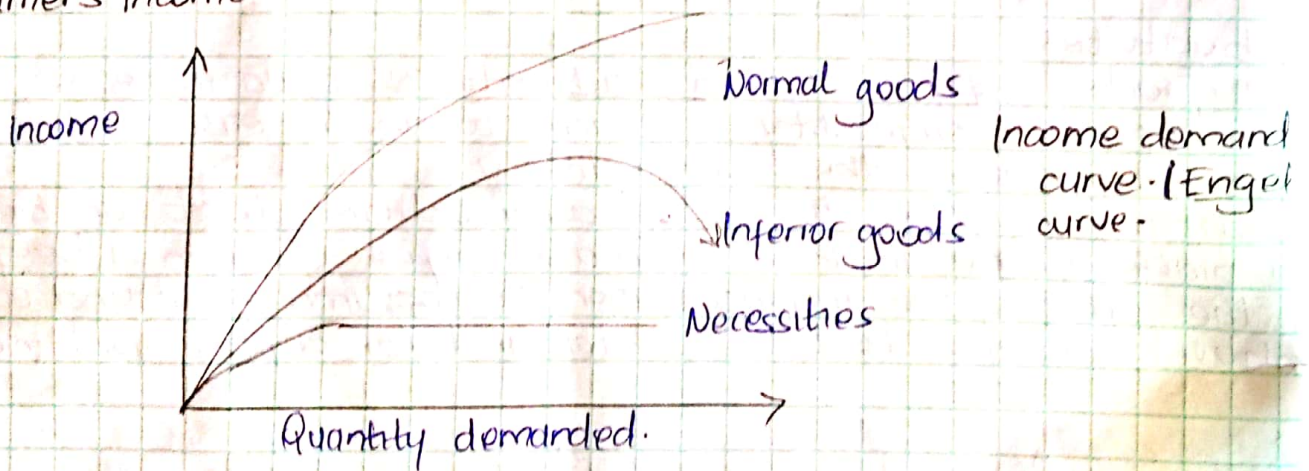 Income
Normal goods
Inferior goods
Necessities
Quantity demanded.
Income demand
curve. (Engel
curve.